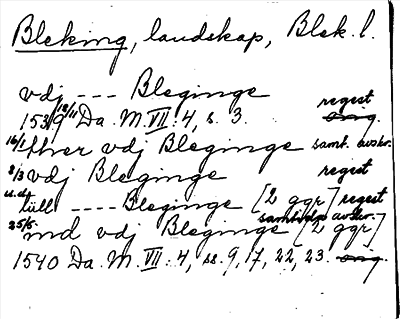 Bleking, landskap, Blek. l.
vdj --- Bleginge regest
1539 18/11 Da. M. VII: 4, s. 3. orig.
16/1 ffver vdj Bleginge samt. avskr.
8/3 vdj Bleginge regest
u.d. till ---- Bleginge [2 ggr] regest
25/5 ind vdj Bleginge [2 ggr] samtida avskr.
1540 Da. M. VII: 4, ss. 9, 17, 22, 23. orig.